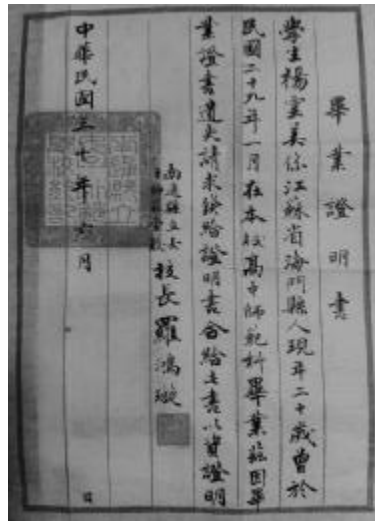 畢業證明書
學生楊寶美係江蘇省海門縣人現年二十歲曾於
民國二十九年一月在本校高中師範科畢業茲因畢
業證書遺失請求發給證明書合給之書以資證明
南通縣立女
校長羅鴻璇
中華民國三十年六月 日